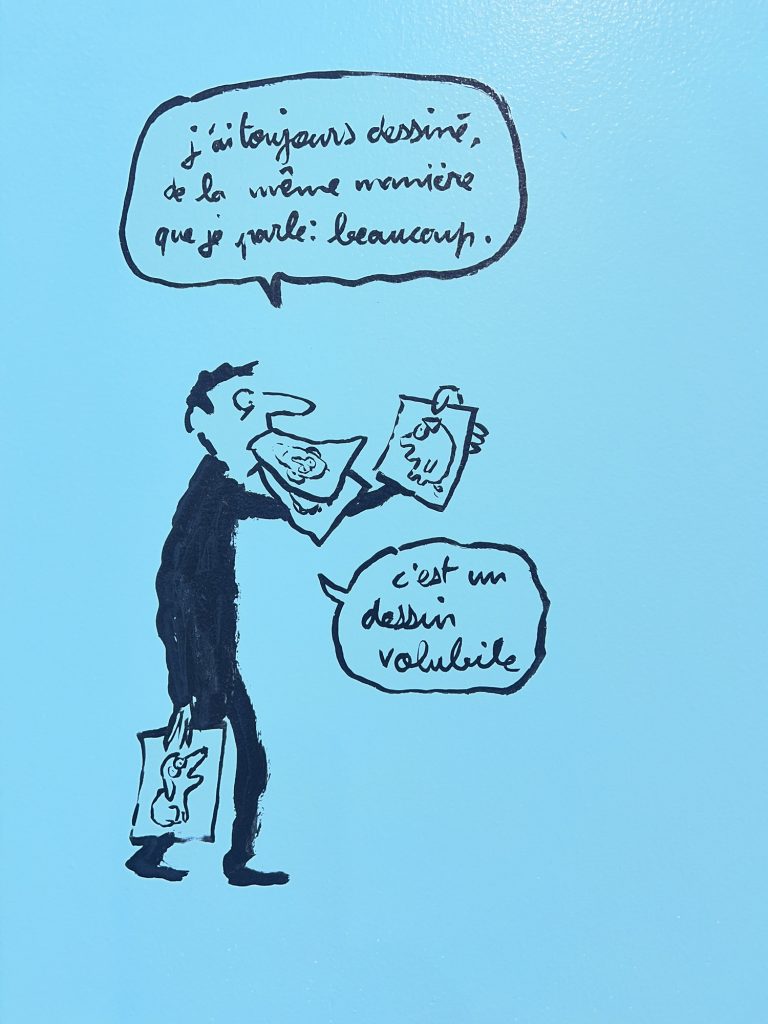 j'ai toujours dessiné,
de la même manière
que je parle: beaucoup.
c'est un
dessin
volubile